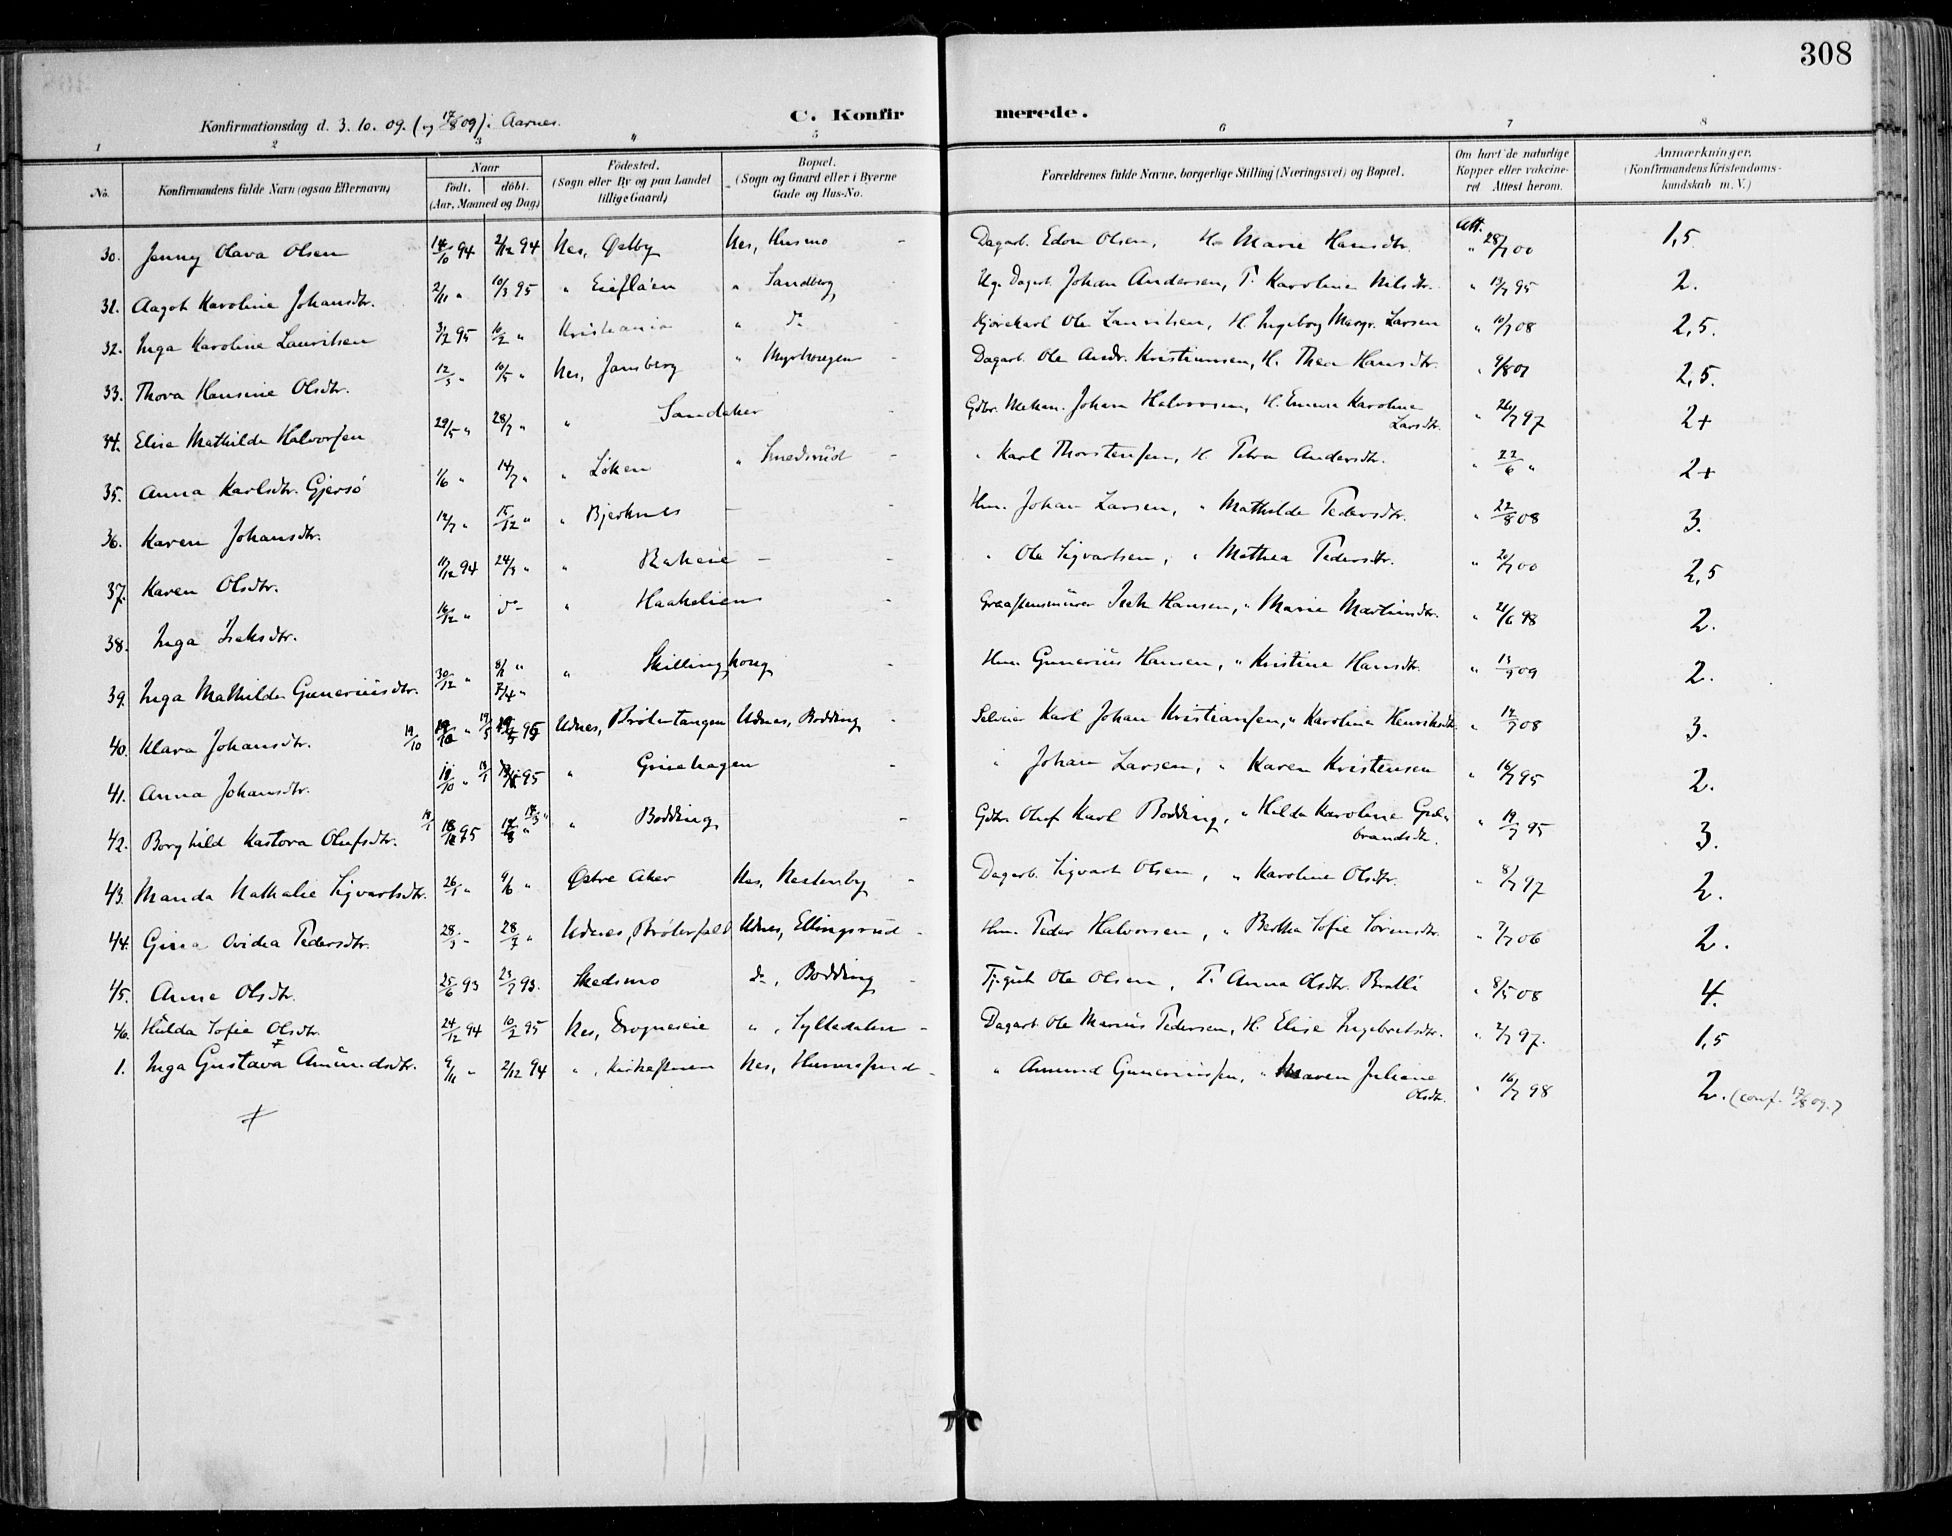 308
C. Konfirmerede.
Konfirmationsdag d. 3. 10. 09. (og 17/8 09) i Aarnes.
1 2 3 4 5 6 7 8
No. Konfirmandens fulde Navn (ogsaa Efternavn) Naar födt. döbt. (Aar, Maaned og Dag) Födested. (Sogn eller By og paa Landet tillige Gaard) Bopæl. (Sogn og Gaard eller i Byerne Gade og Hus-No. Forældrenes fulde Navne, borgerlige Stilling (Næringsvei) og Bopæl. Om havt de naturlige Kopper eller vakcineret Attest herom. Anmærkninger. (Konfirmandens Kristendomskundskab m. V.)
30. Jenny Olava Olsen 14/10 94 2/12 94 Nes, Østby Nes, Husmo - Dagarb. Edon Olsen, H. Marie Hansdtr. Att. " 28/7 00 1,5
31. Aagot Karoline Johansdtr. 2/11 " 10/3 95 " Eiefloen " Sandberg Ug. Dagarb. Johan Andersen, P. Karoline Nilsdtr. " 19/7 95 2.
32. Inga Karoline Lauritsen 3/2 95 16/2 " Kristiania " do Kjørekarl Ole Lauritsen, H. Ingeborg Margr. Larsen " 10/7 08 2,5.
33. Thora Hansine Olsdtr. 12/3 " 10/5 " Nes, Jansberg " Myrhaugen - Dagarb. Ole Andr. Kristiansen, H. Thea Hansdtr. " 9/8 07 2,5.
34. Elise Mathilde Halvorsen 29/5 " 28/7 " " Sandaker - Gdbr. Mekan. Johan Halvorsen, H. Emma Karoline Larsdtr. " 26/7 97 2+
35. Anna Karlsdtr. Gjersø 1/6 " 14/7 " " Løken " Smedsrud - " Karl Thorstensen, H. Petra Andersdtr. " 22/6 " 2+
36. Karen Johansdtr. 12/7 " 15/12 " " Bjerknes - - Hm. Johan Larsen, " Mathilde Pedersdtr. " 22/8 08 3.
37. Karen Olsdtr. 11/12 94 24/3 " " Rakeie - " Ole Sigvartsen, " Mathea Pedersdtr. " 20/7 00 2,5
38. Inga Iseksdtr. 16/12 " do " Haakelien - Graastensmurer Isek Hansen, " Marie Martinsdtr. " 21/6 98 2.
39. Inga Mathilde Gunneriusdtr. 30/12 " 8/1 " 7/4 " " Skillinghaug - Hm. Gunerius Hansen, " Kristine Hansdtr. " 13/9 09 2.
40. Klara Johansdtr. 19/10 " 19/5 95 Udnes, Brøtertangen Udnes, Bodding - Selveier Karl Johan Kristiansen, " Karoline Henriksdtr. " 14/9 08 3.
41. Anna Johansdtr. " 95 " Grinehagen " Johan Larsen, " Karen Kristensen " 16/7 95 2.
42. Borghild Kastora Olufsdtr. 95 " " Bodding - Gdbr. Oluf Karl Bodding, " Hilda Karoline Gulbrandsdtr. " 19/7 95 3.
43. Manda Nathalie Sigvartsdtr. 26/1 " 9/6 " Østre Aker Nes, Nestenby - Dagarb. Sigvart Olsen, " Karoline Olsdtr. " 8/7 97 2.
44. Gina Ovidea Pedersdtr. 28/3 - 28/7 " Udnes, Brøterfald Udnes, Ellingsrud - Hm. Peder Halvorsen, " Bertha Sofie Sørensdtr. " 7/7 06 2.
45. Anne Olsdtr. 25/6 93 23/7 93. Skedsmo do, Bodding - Tj.gut Ole Olsen, P. Anna Olsdtr. Bratli " 8/5 08 4.
46. Hilda Sofie Olsdtr. 24/12 94 10/2 95 Nes, Drogneseie ", Sylledalen - Dagarb. Ole Marius Pedersen, H. Elise Ingebretsdtr. " 2/7 97. 1,5
1. Inga Gustava Amundsdtr. 9/11 " 2/12 94 ", Kirkestuen Nes, Hunersund - " Amund Gunneriussen, " Maren Juliane Olsdtr. " 16/7 98 2. (conf. 17/8 09.)